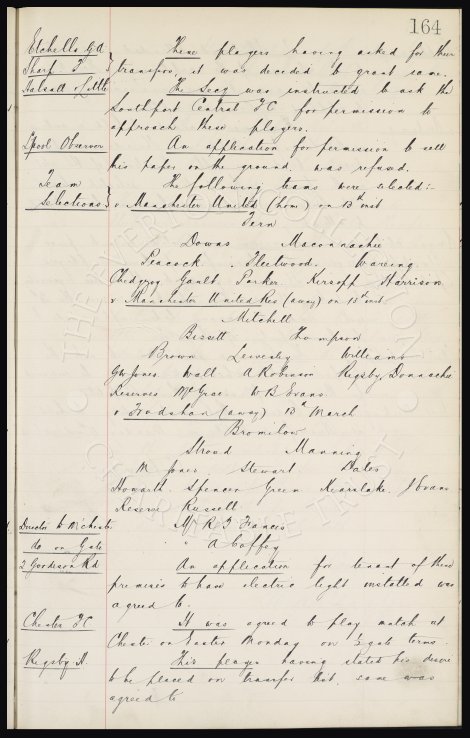 164
Etchells G.A } These players having asked for their
Sharp J } transfer, it was decided to grant same.
Halsall & Settle The Secy was instructed to ask the
Southport Central FC for permission to
approach these players.
L'pool Observer An application for permission to sell
his paper on the ground, was refused.
Team The following teams were selected:-
Selections } v Manchester United (hom) on 13th inst
Fern
Downs Macconnachie
Peacock . Fleetwood . Wareing
Chedgzoy Gault Parker Kirsopp Harrison
v Manchester United Res (away) on 13th inst
Mitchell
Bissett Thompson
Brown Lievesley Williams
GW Jones Wall A Robinson Rigsby, Donnachie
Reserves McGrae W B Evans
v Frodsham (away) 13th March
Bromilow
Stroud Manning
M Jones Stewart Bates
Howarth Spencer Green Kearslake J Evans
Reserve Russell
Director to M'chester Mr R F Francis
do on Gate " A Coffey
2 Goodison Rd An application for tenant of these
premises to have electric light installed was
agreed to.
Chester FC It was agreed to play match at
Chester on Easter Monday on ½ gate terms.
Rigsby A. This player having stated his desire
to be placed on transfer list, same was
agreed to
THE EVERTON COLLECTION
CHARITABLE TRUST